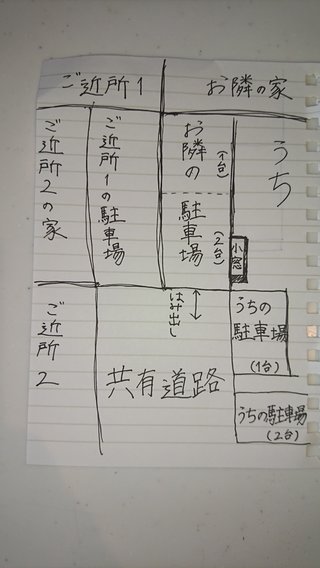 ご近所1
お隣の家
ご近所2の家
ご近所1の駐車場
お隣の駐車場
(1台)
(2台)
うち
小窓
ご近所2
はみ出し
共有道路
うちの
駐車場
(1台)
うちの駐車場
(2台)